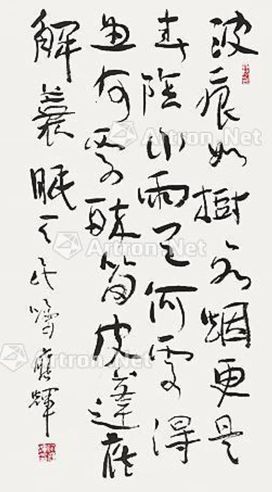 波痕如樹烟更是
春陰小雨天何處得
魚何處醉皮篷底
解蓑眠輝
Artron.Net
Artron.Net
Artron.Net
Artron.Net
Artron.Net